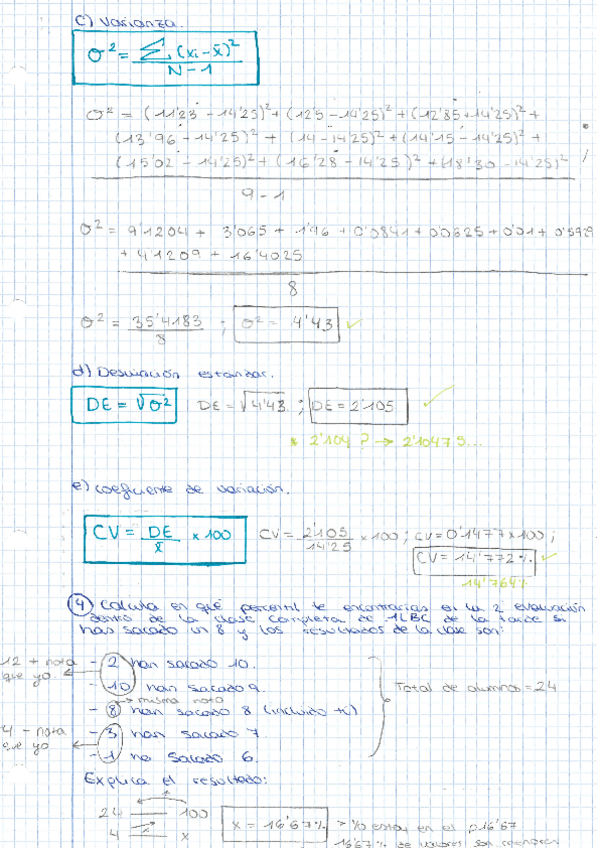 c) Varianza.
σ² = Σ (xi - x̄)² / N - 1
σ² = (11'23 - 14'25)² + (12'5 - 14'25)² + (12'85 + 14'25)² +
(13'96 - 14'25)² + (14 - 14'25)² + (14'15 - 14'25)² +
(15'02 - 14'25)² + (16'28 - 14'25)² + (18'30 - 14'25)²
9 - 1
σ² = 9'1204 + 3'065 + 1'96 + 0'0841 + 0'0625 + 0'01 + 0'5929
+ 4'1209 + 16'4025
8
σ² = 35'4183 / 8 ; σ² = 4'43 ✓
d) Desviación estandar.
DE = √σ² DE = √4'43 ; DE = 2'105 ✓
* 2'104 ? → 2'10475...
e) coeficiente de variación.
CV = DE / x̄ × 100 CV = 2'105 / 14'25 × 100 ; CV = 0'1477 × 100 ;
CV = 14'772% ✓
14'764%
④ Calcula en qué percentil te encontrarías en la 2 evaluación
dentro de la clase completa de 1LBC de la tarde si
has sacado un 8 y los resultados de la clase son:
12 + nota que yo. ← - 2 han sacado 10.
- 10 han sacado 9.
→ misma nota
- 8 han sacado 8 (incluido tú)
Total de alumnos = 24
4 - nota que yo ← - 3 han sacado 7
- 1 ha sacado 6.
Explica el resultado:
24 — 100
4 — x
x = 16'67%
> Yo estoy en el p16'67
16'67% de valores son